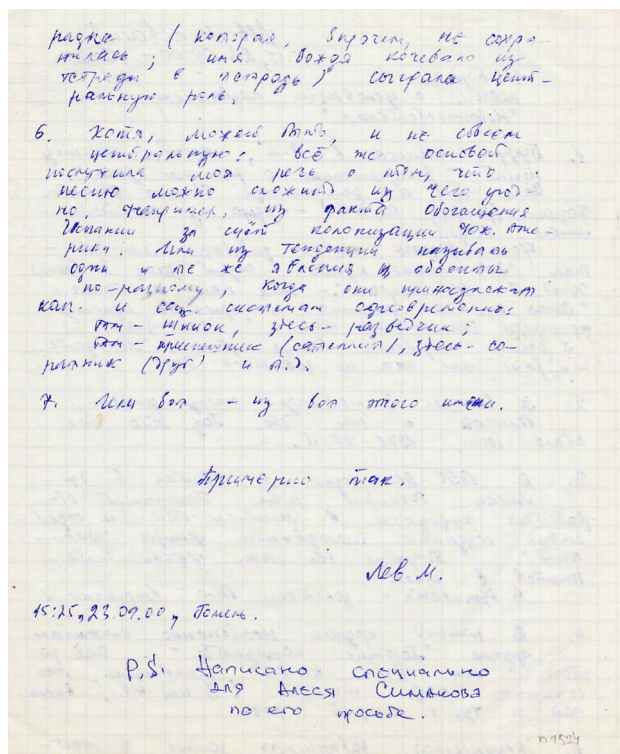 радка (которая, впрочем, не сохра-
нилась; имя вождя кочевало из
тетради в тетрадь) сыграла цент-
ральную роль.
6. Хотя, может быть, и не совсем
центральную: всё же основой
послужила моя речь о том, что
песню можно сложить из чего угод-
но, например, из факта обогащения
Испании за счёт колонизации Юж. Аме-
рики. Или из тенденции называть
одни и те же явления и объекты
по-разному, когда они принадлежат
кап. и соц. системам одновременно:
там – шпион, здесь – разведчик;
там – приспешник (сателлит), здесь – со-
ратник (друг) и т.д.
7. Или вот – из вот этого имени.
Примерно так.
Лев. М.
15:25, 23.09.00, Тюмень.
P.S. Написано специально
для Алеся Симакова
по его просьбе.
n1524